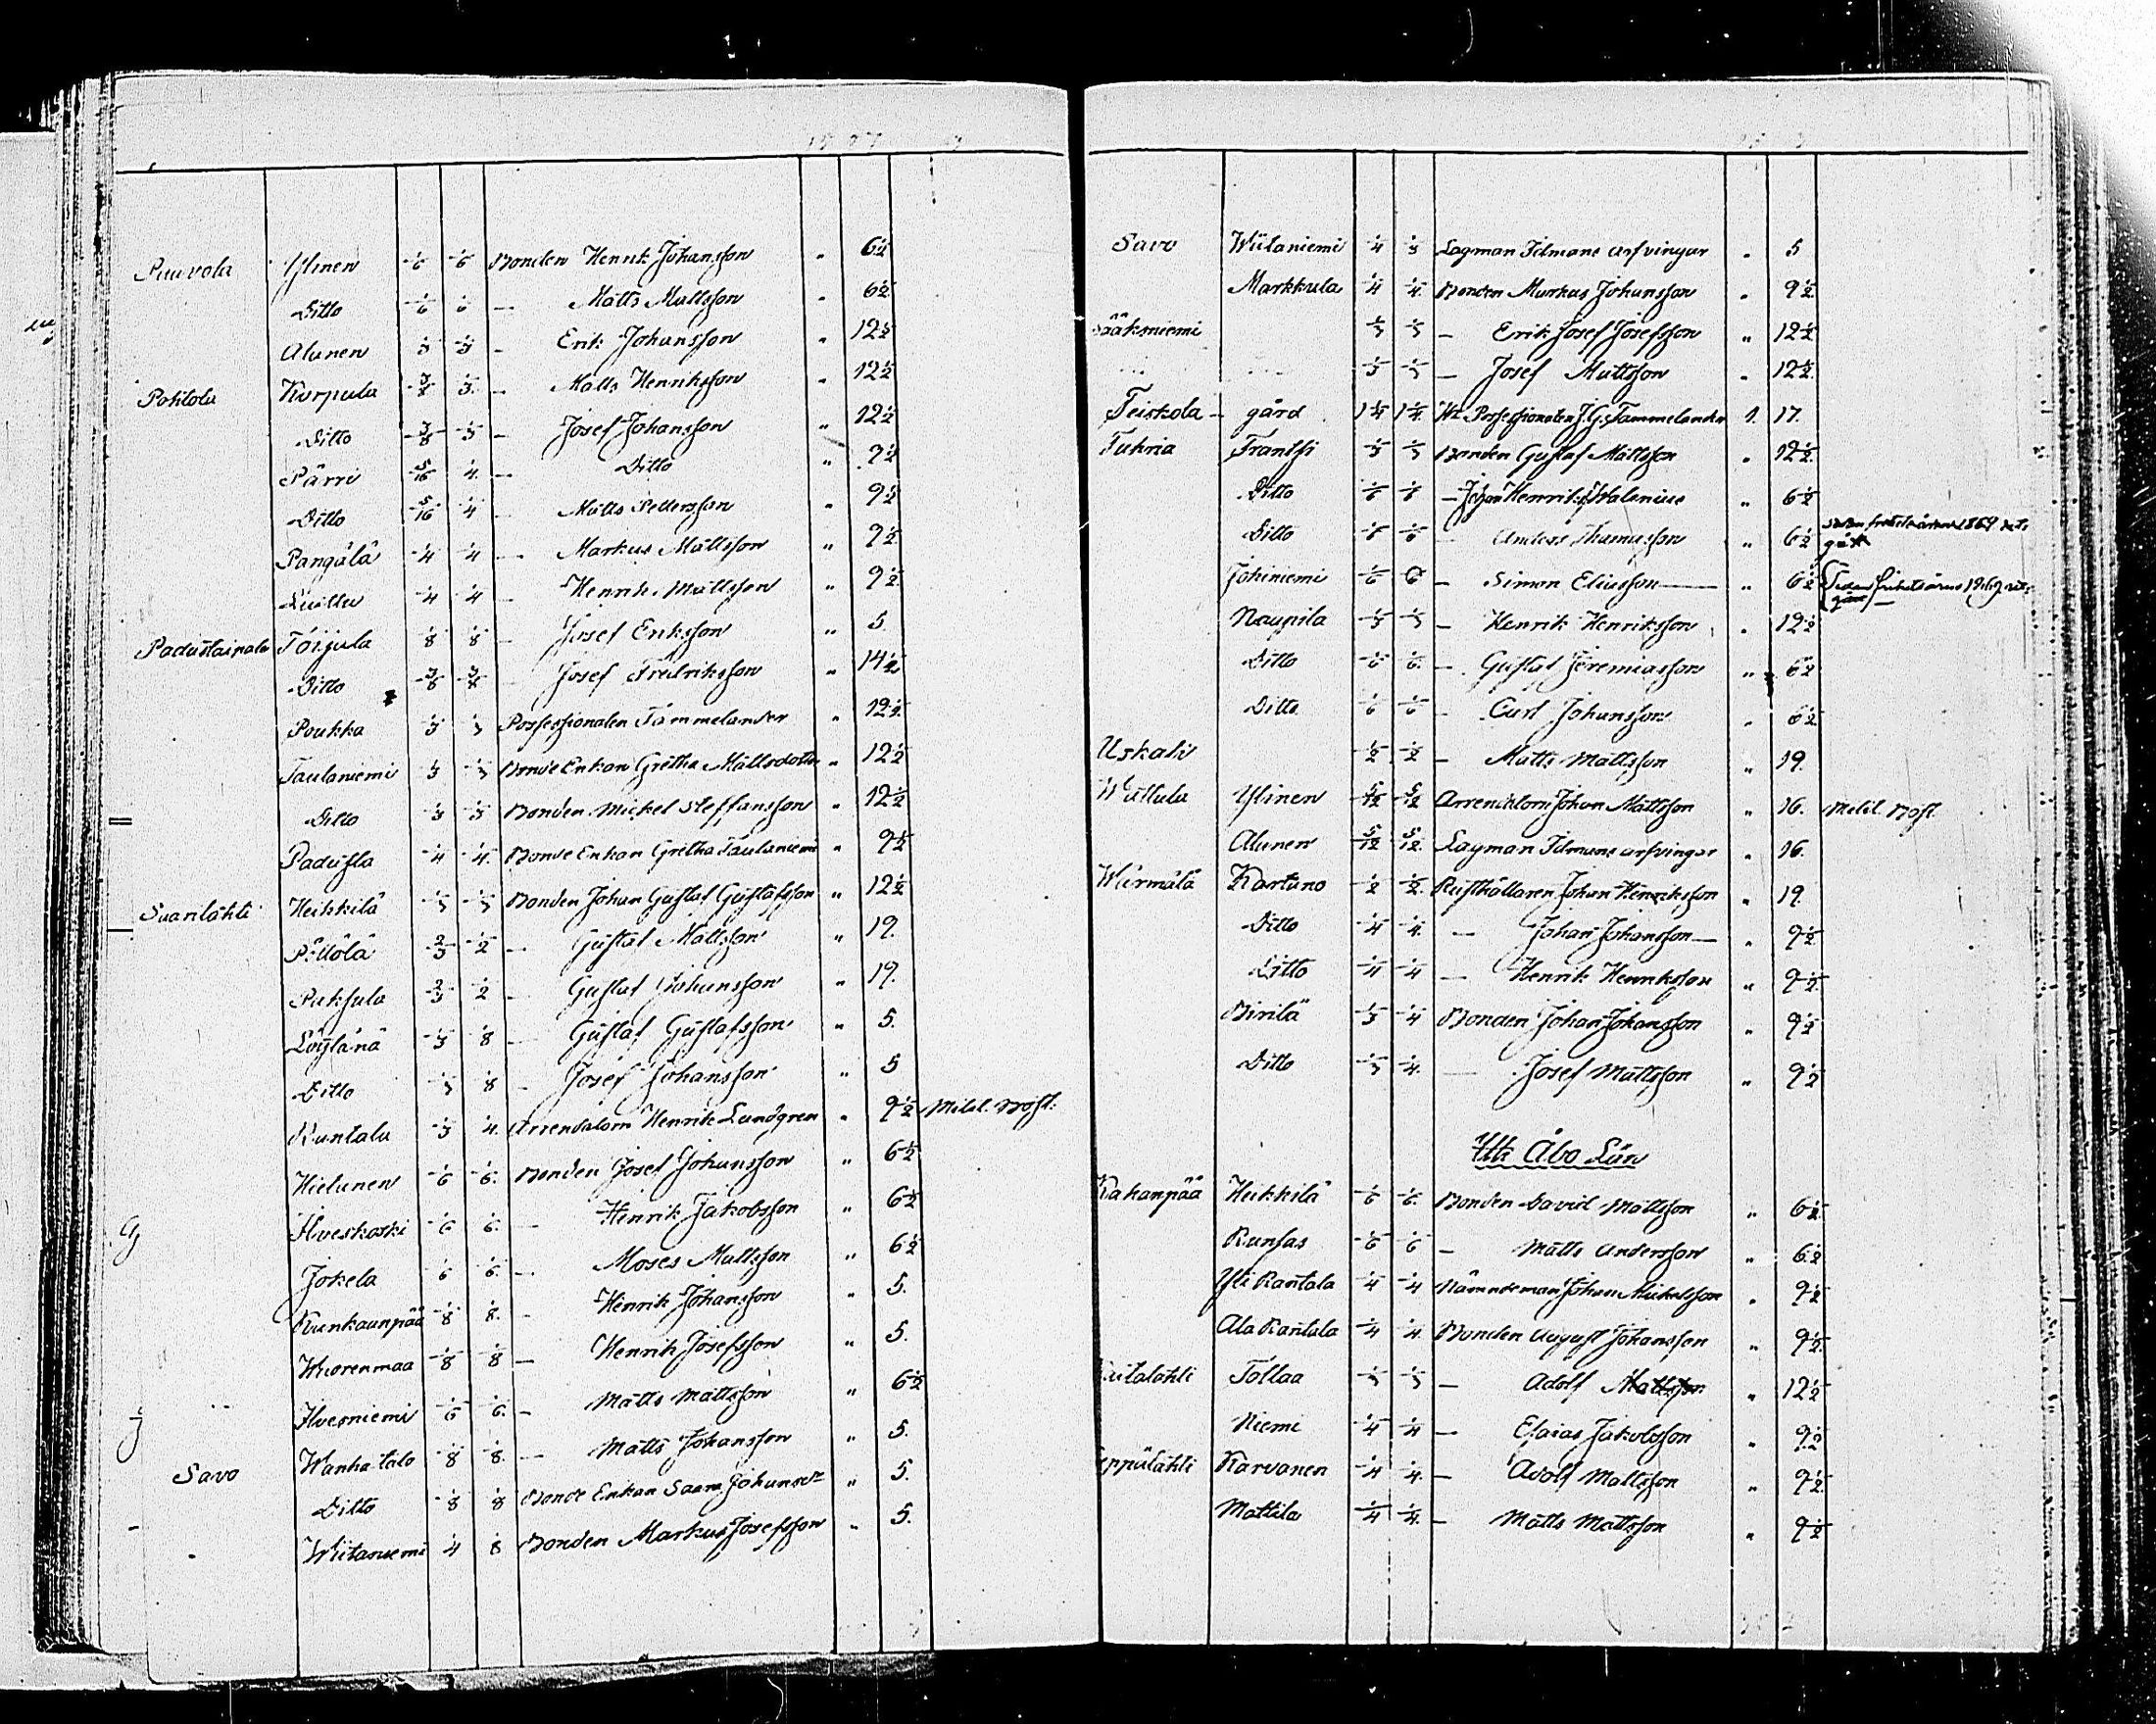 Puuvola Ylinen 1/6 1/6 Bonden Henrik Johansson " 6 1/2
Ditto 1/6 1/6 — Matts Mattsson " 6 1/2
Alanen 1/3 1/3 — Erik Johansson " 12 1/2
Pohtola Kurpula 3/8 1/3. — Matts Henriksson " 12 1/2
Ditto 3/8 1/3 — Josef Johansson " 12 1/2
Pärri 5/16 1/4. — Ditto " 9 1/2
Ditto 5/16 1/4 — Matts Pettersson " 9 1/2
Pangälä 1/4 1/4 — Markus Mattsson " 9 1/2
1/4 1/4 — Henrik Mattsson " 9 1/2
Padustaipale Töijula 1/8 1/8 — Josef Eriksson " 5.
Ditto 3/8 3/8 Josef Fredriksson " 14 1/2
Poukka 1/3 1/3 Possessionaten Tammelander " 12 1/2
Taulaniemi 1/3 1/3 Bonde Enkan Gretha Mattsdotter " 12 1/2
Ditto 1/3 1/3 Bonden Mickel Steffansson " 12 1/2
Padusta 1/4 1/4. Bonde Enkan Gretha Taulaniemi " 9 1/2
Suarilahti Heikkilä 1/3 1/3 Bonden Johan Gustaf Gustafsson " 12 1/2
2/3 1/2 — Gustaf Mattsson " 19.
Paksula 2/3 1/2 — Gustaf Johansson " 19.
Löylänä 1/3 1/8 — Gustaf Gustafsson " 5.
Ditto 1/3 1/8 — Josef Johansson " 5
Rantala 1/3 1/4. Arrendatorn Henrik Lundgren " 9 1/2 Milit. Bost.
Hielunen 1/6 1/6. Bonden Josef Johansson " 6 1/2
Ilveskoski 1/6 1/6. — Henrik Jakobsson " 6 1/2
Jokela 1/6 1/6. — Moses Mattsson " 6 1/2
Kunkaanpää 1/8 1/8. — Henrik Johansson " 5.
Wuorenmaa 1/8 1/8 — Henrik Josefsson " 5.
Ilvesniemi 1/6 1/6. — Matts Mattsson " 6 1/2
Savo Wanhatalo 1/8 1/8. — Matts Johansson " 5.
Ditto 1/8 1/8 Bonde Enkan Saara Johansdr " 5.
Wiitaniemi 1/4 1/8 Bonden Markus Josefsson " 5.
Savo Wiitaniemi 1/4 1/8 Lagman Idmans arfvingar " 5
Markkula 1/4 1/4. Bonden Markus Johansson " 9 1/2
Sääksniemi 1/3 1/3 — Erik Josef Josefsson " 12 1/2
1/3 1/3 — Josef Mattsson " 12 1/2
Teiskola gård 1 1/4 1 1/4 Possessionaten J. G. Tammelander 1. 17.
Tuhria Frantsi 1/3 1/3 Bonden Gustaf Mattsson " 12 1/2
Ditto 1/6 1/6 — Johan Henriksson Walenius " 6 1/2
Ditto 1/6 1/6 — Anders Thomasson " 6 1/2 sedan frihetsåren 1869 utgått
Johiniemi 1/6 6 — Simon Eliasson " 6 1/2 Sedan frihetsåren 1869 utgått
Naupila 1/3 1/3 — Henrik Henriksson " 12 1/2
Ditto 1/6 1/6. — Gustaf Jeremiasson " 6 1/2
Ditto 1/6 1/6 — Carl Johansson " 6 1/2
Uskali 1/2 1/2 — Matts Mattsson " 19.
Wattula Ylinen 5/12 5/12 Arrendatorn Johan Mattsson " 16. Milit. Bost.
Alanen 5/12 5/12. Lagman Idmans arfvingar " 16.
Wärmälä Kartano 1/2 1/2. Rusthållaren Johan Henriksson " 19.
Ditto 1/4 1/4. — Johan Johansson — " 9 1/2
Ditto 1/4 1/4 — Henrik Henriksson " 9 1/2
Birilä 1/3 1/4 Bonden Johan Johansson " 9 1/2
Ditto 1/3 1/4. — Josef Mattsson " 9 1/2
Uti Åbo Län
Kahanpää Heikkilä 1/6 1/6. Bonden David Mattsson " 6 1/2
Runsas 1/6 1/6 — Matts Andersson " 6 1/2
Yli Rantala 1/4 1/4 Nämndeman Johan Mickelsson " 9 1/2
Ala Rantala 1/4 1/4. Bonden August Johansson " 9 1/2
Tollaa 1/3 1/3 — Adolf Mattsson " 12 1/2
Niemi 1/4 1/4 — Esaias Jakobsson " 9 1/2
Karvanen 1/4 1/4. — Adolf Mattsson " 9 1/2
Mattila 1/4 1/4. — Matts Mattsson " 9 1/2